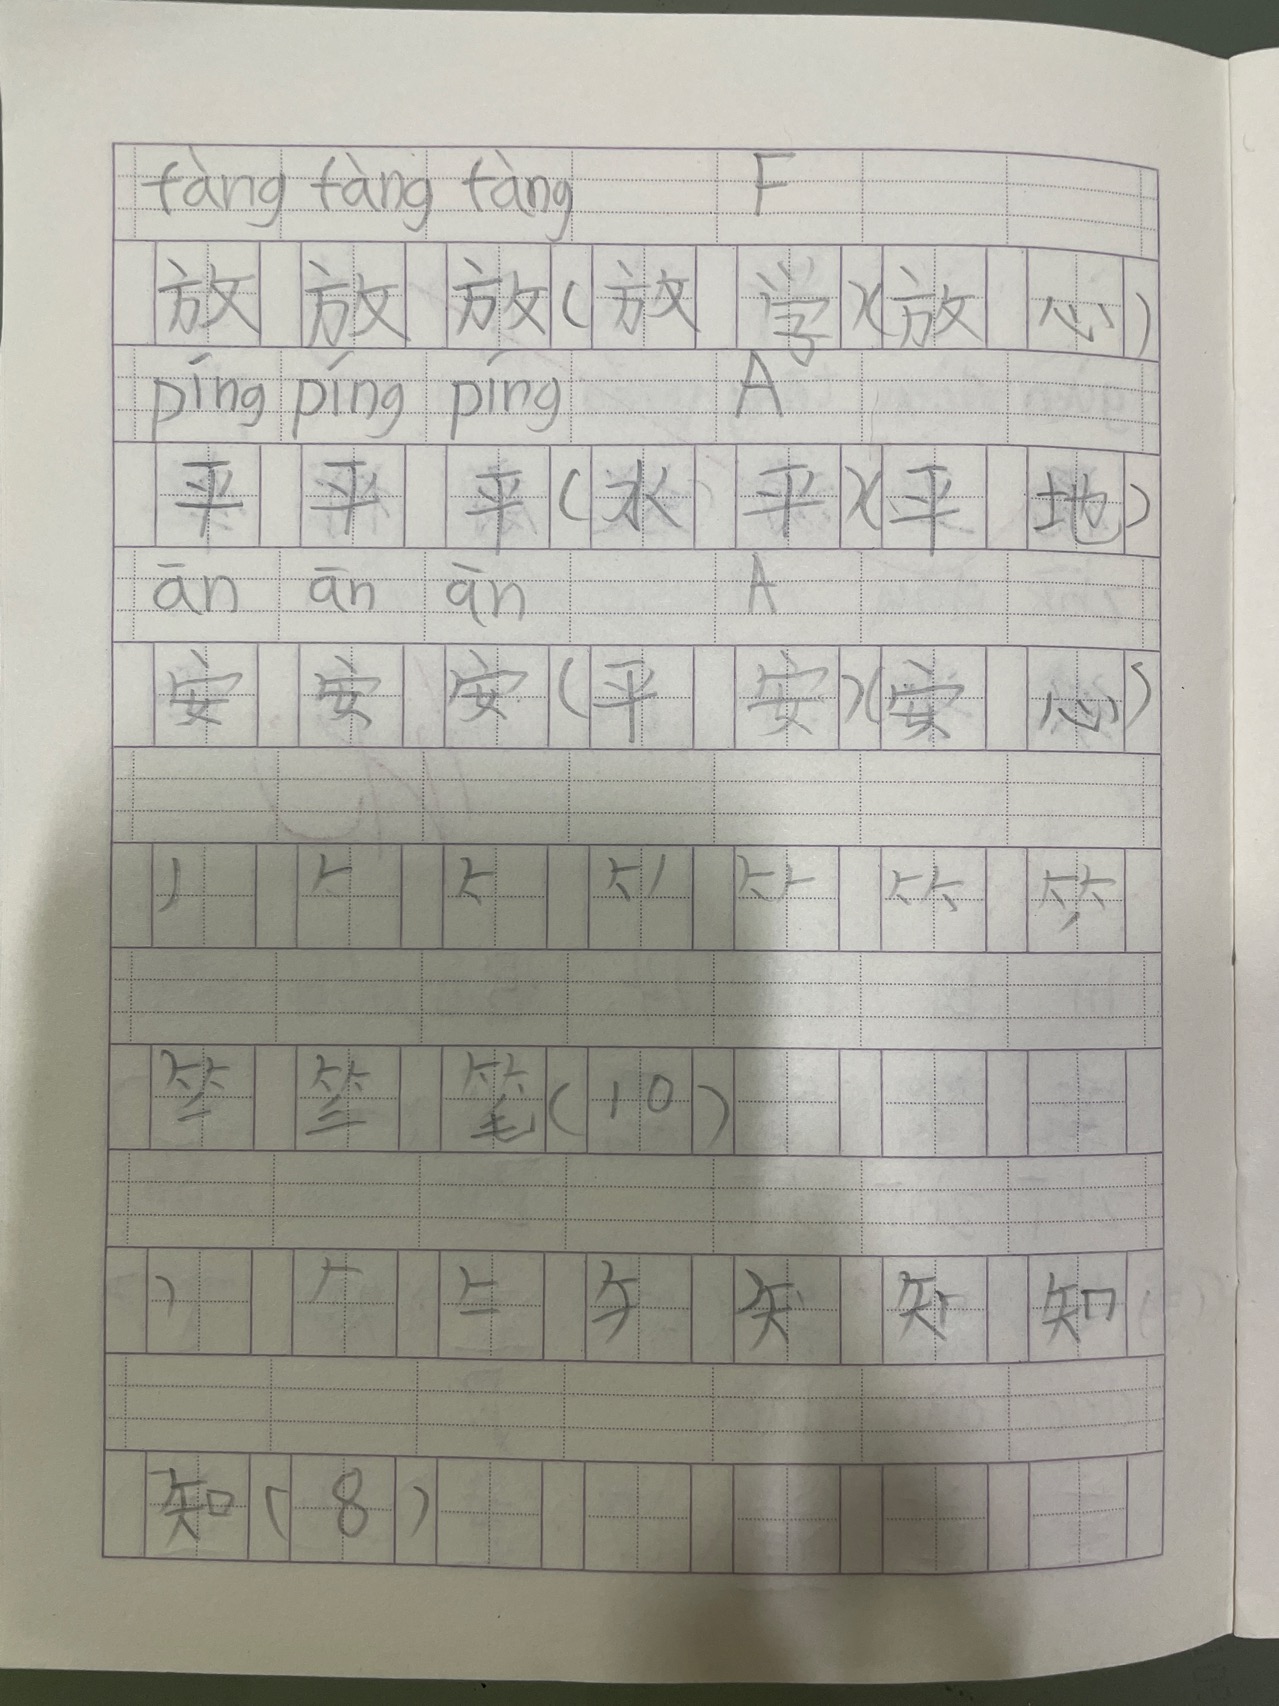 fàng fàng fàng F
放 放 放 ( 放 学 ) ( 放 心 )
píng píng píng A
平 平 平 ( 水 平 ) ( 平 地 )
ān ān ān A
安 安 安 ( 平 安 ) ( 安 心 )
笔 ( 10 )
知
知 ( 8 )